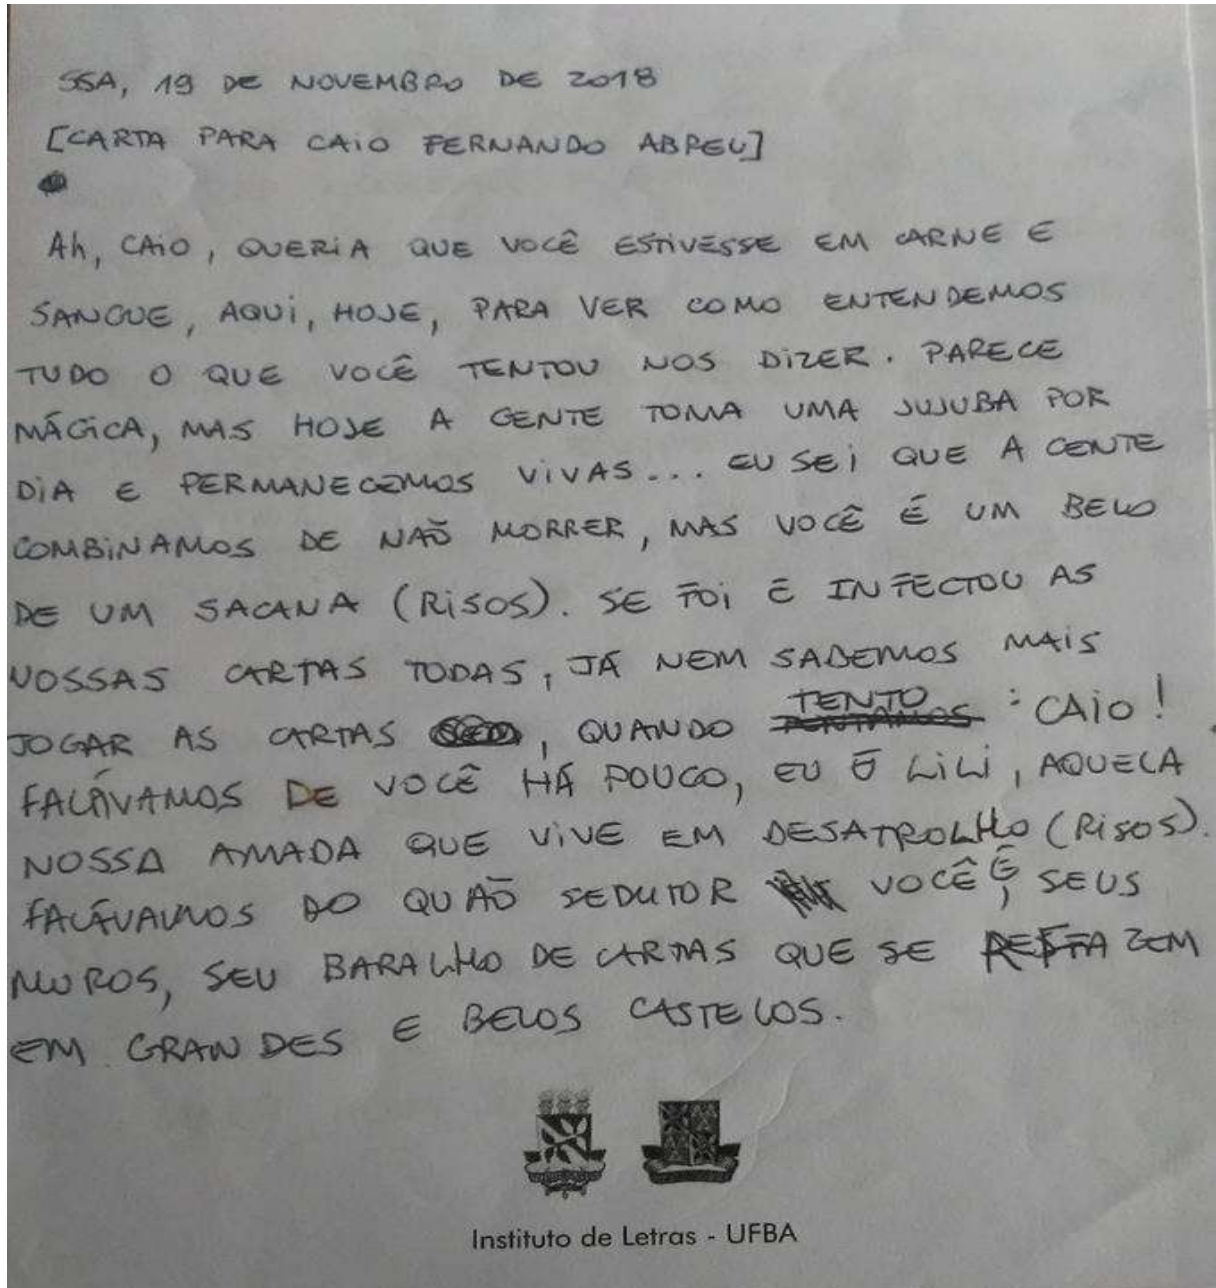 SSA, 19 DE NOVEMBRO DE 2018
[CARTA PARA CAIO FERNANDO ABREU]
Ah, CAIO, QUERIA QUE VOCÊ ESTIVESSE EM CARNE E
SANGUE, AQUI, HOJE, PARA VER COMO ENTENDEMOS
TUDO O QUE VOCÊ TENTOU NOS DIZER. PARECE
MÁGICA, MAS HOJE A GENTE TOMA UMA JUJUBA POR
DIA E PERMANECEMOS VIVAS... EU SEI QUE A GENTE
COMBINAMOS DE NÃO MORRER, MAS VOCÊ É UM BELO
DE UM SACANA (RISOS). SE FOI E INFECTOU AS
NOSSAS CARTAS TODAS, JÁ NEM SABEMOS MAIS
JOGAR AS CARTAS, QUANDO TENTO : CAIO!
FALÁVAMOS DE VOCÊ HÁ POUCO, EU E LILI, AQUELA
NOSSA AMADA QUE VIVE EM DESATROLHO (RISOS).
FALÁVAMOS DO QUÃO SEDUTOR VOCÊ É, SEUS
MUROS, SEU BARALHO DE CARTAS QUE SE
EM GRANDES E BELOS CASTELOS.
Instituto de Letras - UFBA